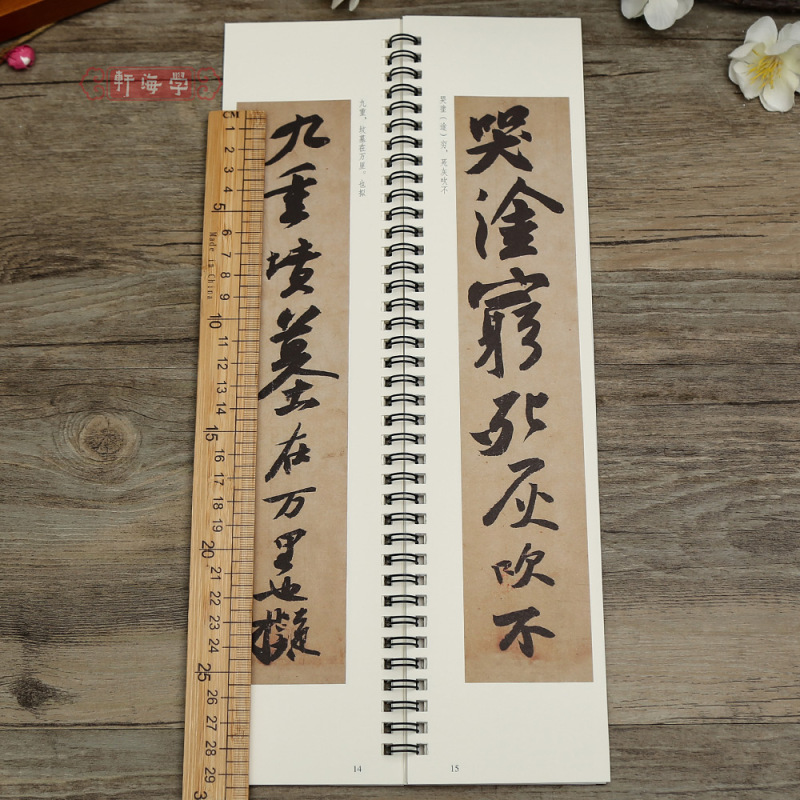 軒海學
CM
1
2
3
4
5
6
7
8
9
10
11
12
13
14
15
16
17
18
19
20
21
22
23
24
25
26
27
28
29
Made in China
九重墳墓在万里也擬
九重，坟墓在万里。也拟
14
哭塗（途）穷，死灰吹不
哭塗窮死灰吹不
15